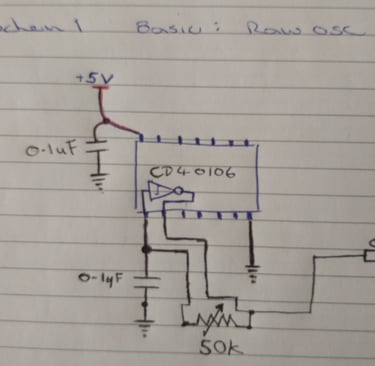 Basic: Raw osc
+5V
0.1uF
CD40106
0.1uF
50K